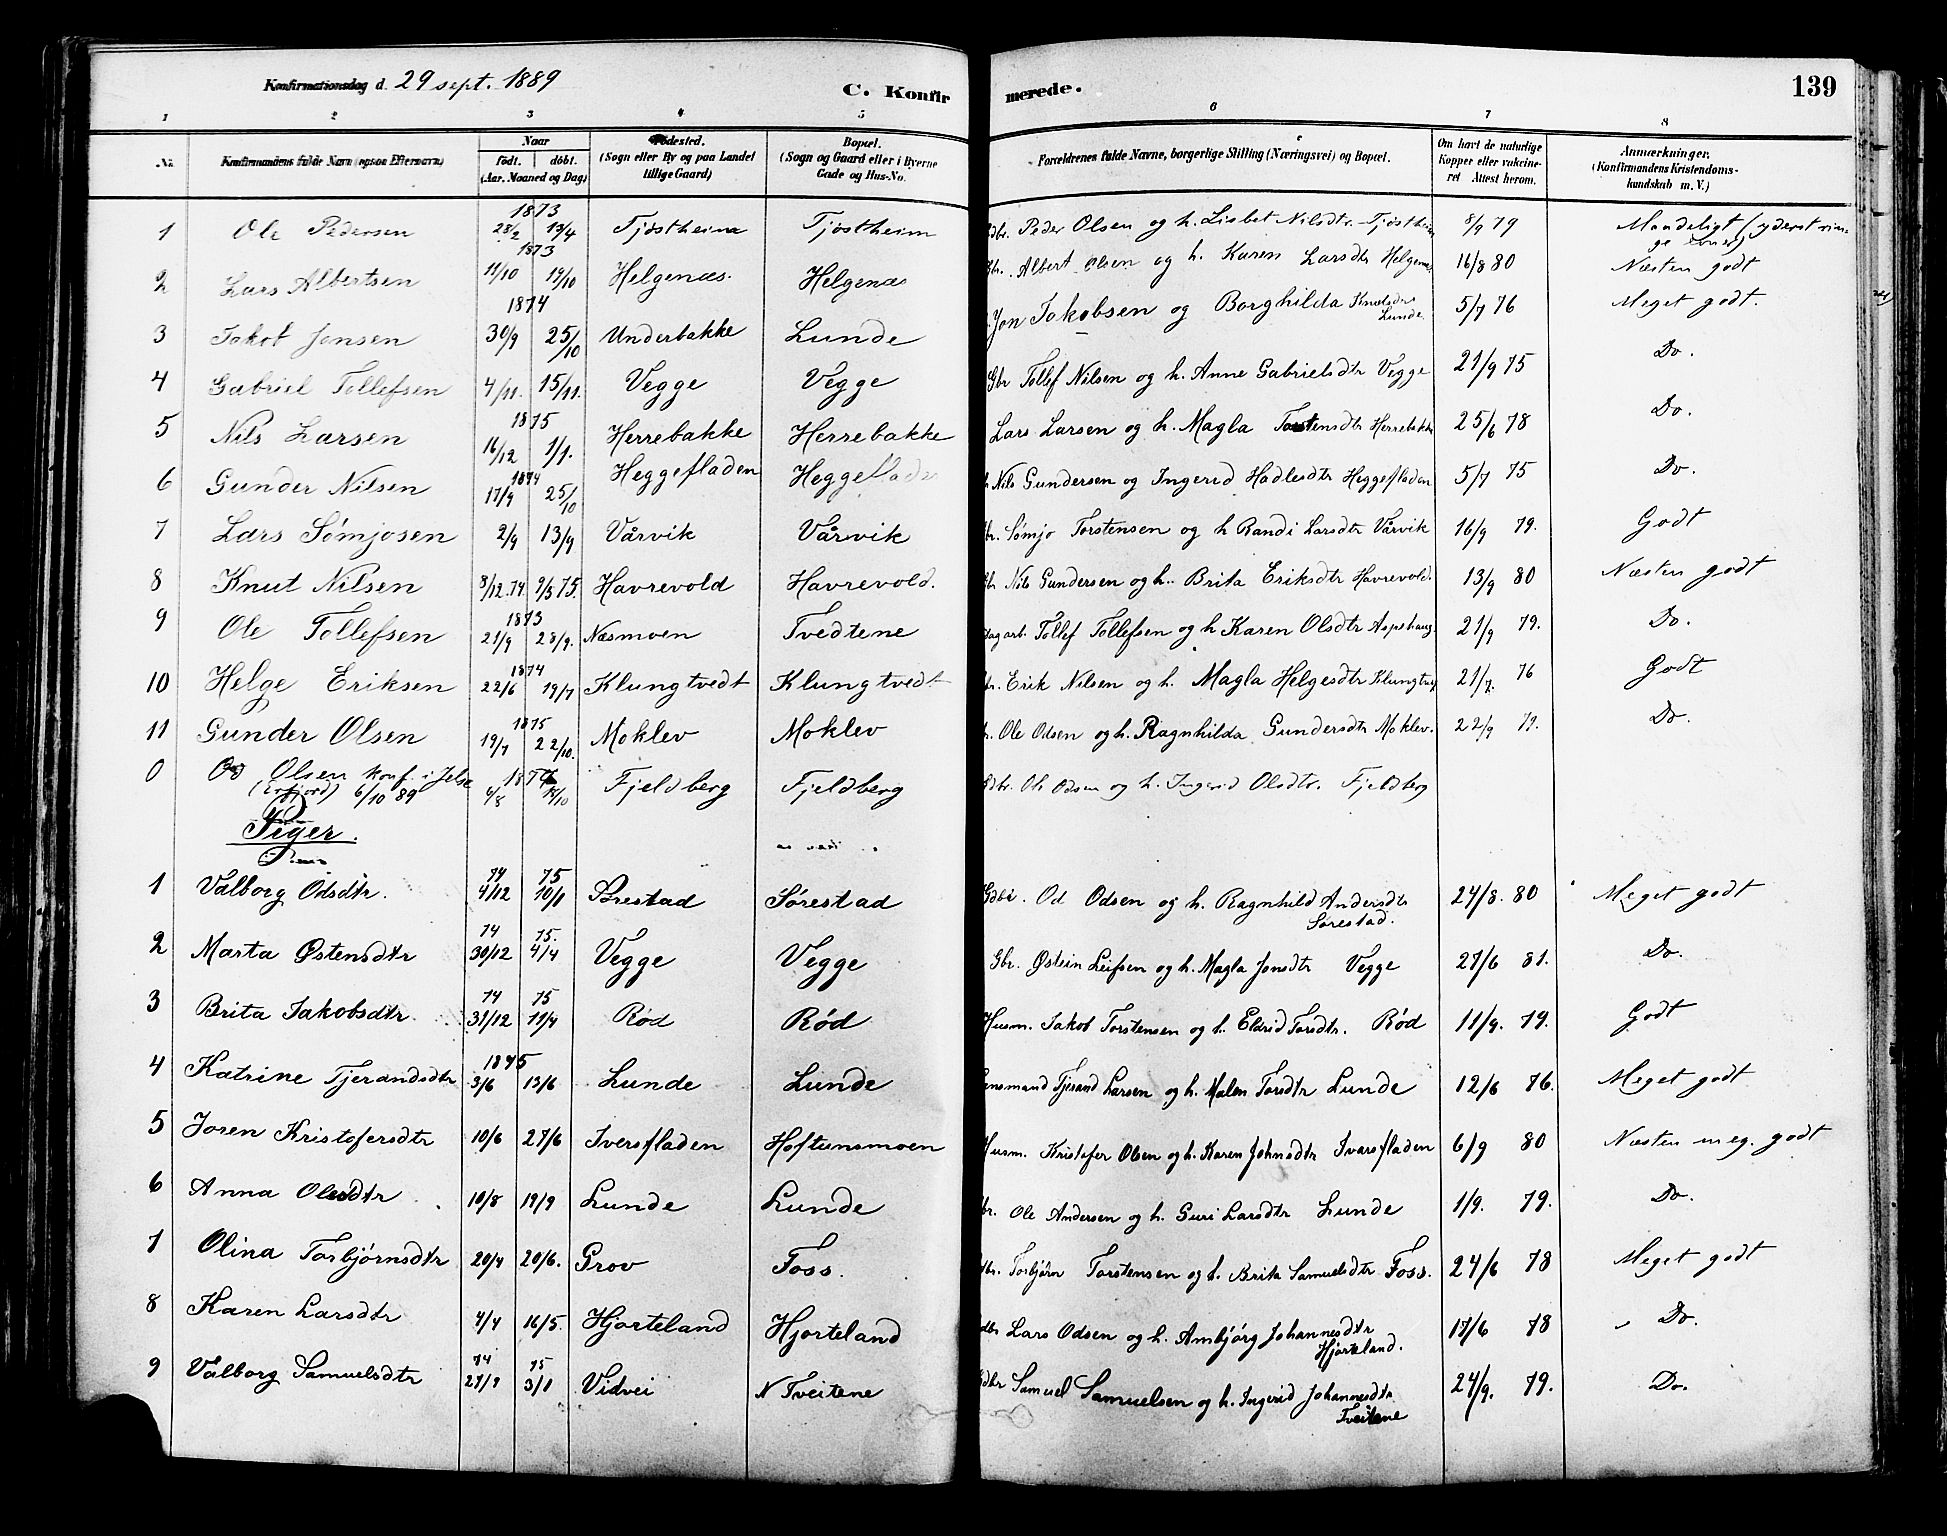 Konfirmationsdag d. 29 sept. 1889 C. Konfirmerede. 139
1 2 3 4 5 6 7 8
No. Konfirmandens fulde Navn (ogsaa Efternavn) Naar født. døbt. (Aar, Maaned og Dag) Fødested. (Sogn eller By og paa Landet tillige Gaard) Bopæl. (Sogn og Gaard eller i Byerne Gade og Hus-No. Forældrenes fulde Navne, borgerlige Stilling (Næringsvei) og Bopæl. Om havt de naturlige Kopper eller vaccineret Attest herom. Anmærkninger. (Konfirmandens Kristendomskundskab m. V.)
1 Ole Pedersen 1873 28/2 13/4 Tjøstheim Tjøstheim Gbr. Peder Olsen og h. Lisbet Nilsdtr. Tjøstheim 8/9 79 Maadeligt (yderst ringe Evner)
2 Lars Albertsen 1873 11/10 19/10 Helgenæs. Helgenæs Gbr. Albert Olsen og h. Karen Larsdtr Helgenæs 16/8 80 Næsten godt
3 Jakob Jonsen 1874 30/9 25/10 Underbakke Lunde Jon Jakobsen og Borghilda Knutsdtr Lunde 5/7 76 Meget godt.
4 Gabriel Tollefsen 4/11. 15/11. Vegge Vegge Gbr Tollef Nilsen og h. Anne Gabrielsdtr Vegge 21/9 75 Do.
5 Nils Larsen 1875 16/12 1/1. Herrebakke Herrebakke Lars Larsen og h. Magla Torstensdtr Herrebakke 25/6 78 Do.
6 Gunder Nilsen 1874 17/9 25/10 Heggefladen Heggeflade Nils Gundersen og Ingerid Hadlesdtr Heggefladen 5/7 75 Do.
7 Lars Sømjosen 2/9 13/9 Vårvik Vårvik Gbr. Sømjo Torstensen og h Randi Larsdtr Vårvik 16/9 79. Godt
8 Knut Nilsen 8/12.74 9/5 75. Havrevold Havrevold. Gbr Nils Gundersen og h. Brita Eriksdtr Havrevold. 13/9 80 Næsten godt
9 Ole Tollefsen 1873 21/9 28/9. Næsmoen Tvedtene Dagarb. Tollef Tollefsen og h Karen Olsdtr Aspehaug. 21/9 79. Do.
10 Helge Eriksen 1874 22/6 19/7 Klungtvedt Klungtvedt Gbr. Erik Nilsen og h. Magla Helgesdtr Klungtv 21/7. 76 Godt
11 Gunder Olsen 1875 19/7 22/10. Moklev Moklev Ole Odsen og h. Ragnhilda Gundersdtr Moklev. 22/9 79. Do.
0 Od Olsen konf. i Jelse (Erfjord) 6/10 89 4/8 Fjeldberg Fjeldberg Gdbr. Ole Odsen og h. Ingerid Olsdtr. Fjeldberg
Piger.
1 Valborg Odsdtr. 74 4/12 75 10/1 Sørestad Sørestad Gdbr. Od Odsen og h. Ragnhild Andersdtr Sørestad. 24/8. 80 Meget godt
2 Marta Østensdtr 74 30/12 75. 4/4 Vegge Vegge Gbr. Østein Leifsen og h. Magla Jonsdtr Vegge 27/6 81. Do.
3 Brita Jakobsdtr. 74 31/12 75 11/4 Rød Rød Husm. Jakob Torstensen og h. Eldrid Torsdtr. Rød 11/9. 79. Godt
4 Katrine Tjerandsdtr 1875 3/6 13/6 Lunde Lunde Lensmand Tjerand Larsen og h. Malen Torsdtr Lunde 12/6 76. Meget godt
5 Joren Kristofersdtr 10/6 27/6 Iversfladen Hoftunsmoen Husm. Kristofer Olsen og h. Karen Johnsdtr Ivarsfladen 6/9 80 Næsten meg. godt
6 Anna Olesdtr 10/8 19/9 Lunde Lunde Gbr. Ole Andersen og h. Guri Larsdtr Lunde 1/9. 79. Do.
7 Olina Torbjørnsdtr 20/4 20/6. Grov Foss. Gdbr. Torbjørn Torstensen og h. Brita Samuelsdtr Foss. 24/6 78 Meget godt
8 Karen Larsdtr 4/4 16/5. Hjorteland Hjorteland Gdbr Lars Odsen og h. Ambjørg Johannesdtr Hjorteland. 17/6 78 Do.
9 Valborg Samuelsdtr 74 75 3/1 Vidvei N Tveitene Gdbr Samuel Samuelsen og h. Ingerid Johannesdtr Tveitene 24/9. 79. Do.